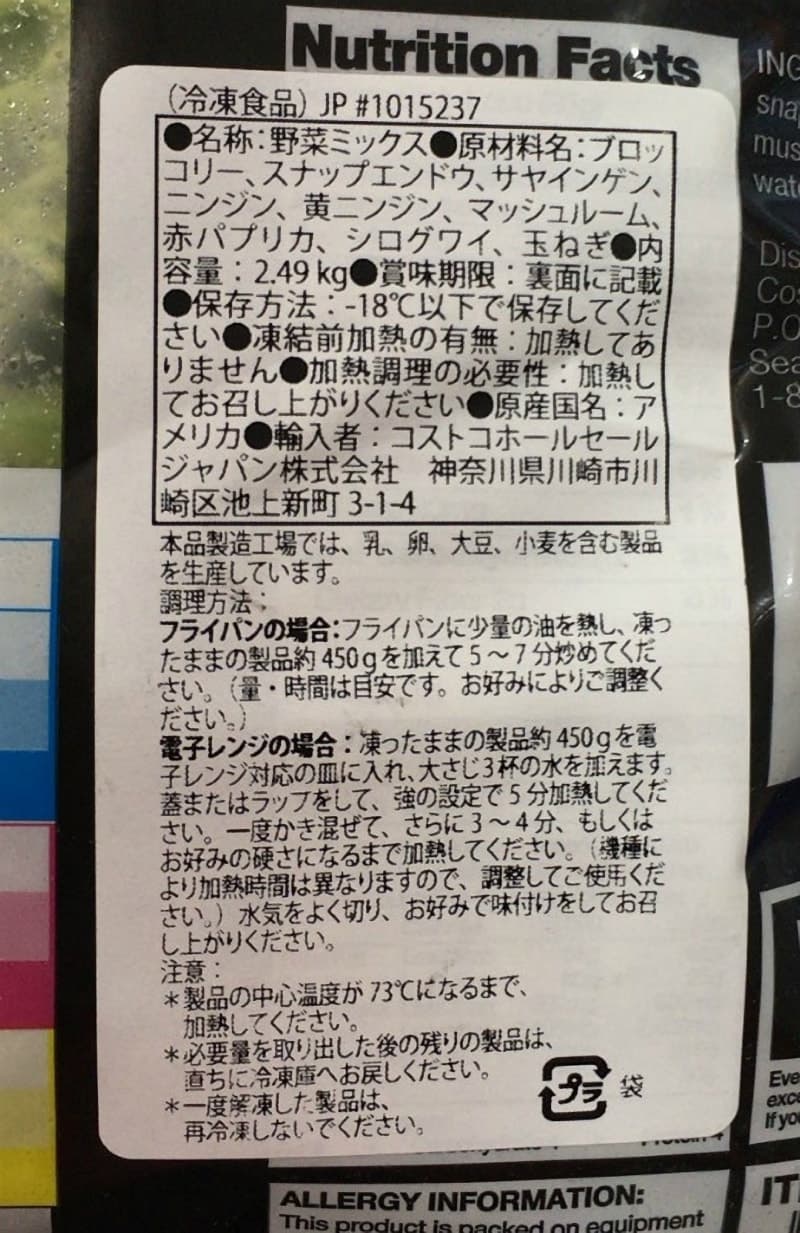 Nutrition Facts
（冷凍食品）JP #1015237
●名称：野菜ミックス●原材料名：ブロッ
コリー、スナップエンドウ、サヤインゲン、
ニンジン、黄ニンジン、マッシュルーム、
赤パプリカ、シログワイ、玉ねぎ●内
容量：2.49 kg●賞味期限：裏面に記載
●保存方法：-18℃以下で保存してくだ
さい●凍結前加熱の有無：加熱してあ
りません●加熱調理の必要性：加熱し
てお召し上がりください●原産国名：ア
メリカ●輸入者：コストコホールセール
ジャパン株式会社　神奈川県川崎市川
崎区池上新町 3-1-4
本品製造工場では、乳、卵、大豆、小麦を含む製品
を生産しています。
調理方法：
フライパンの場合：フライパンに少量の油を熱し、凍っ
たままの製品約 450gを加えて 5～7 分炒めてくだ
さい。（量・時間は目安です。お好みによりご調整く
ださい。）
電子レンジの場合：凍ったままの製品約 450gを電
子レンジ対応の皿に入れ、大さじ3杯の水を加えます。
蓋またはラップをして、強の設定で 5 分加熱してくだ
さい。一度かき混ぜて、さらに 3～4 分、もしくは
お好みの硬さになるまで加熱してください。（機種に
より加熱時間は異なりますので、調整してご使用くだ
さい。）水気をよく切り、お好みで味付けをしてお召
し上がりください。
注意：
＊製品の中心温度が 73℃になるまで、
加熱してください。
＊必要量を取り出した後の残りの製品は、
直ちに冷凍庫へお戻しください。
＊一度解凍した製品は、
再冷凍しないでください。
プラ 袋
ALLERGY INFORMATION:
This product is packed on equipment
ING
sna
mus
wat
Dis
Cos
P.O
Sea
1-8
Eve
exce
If yo